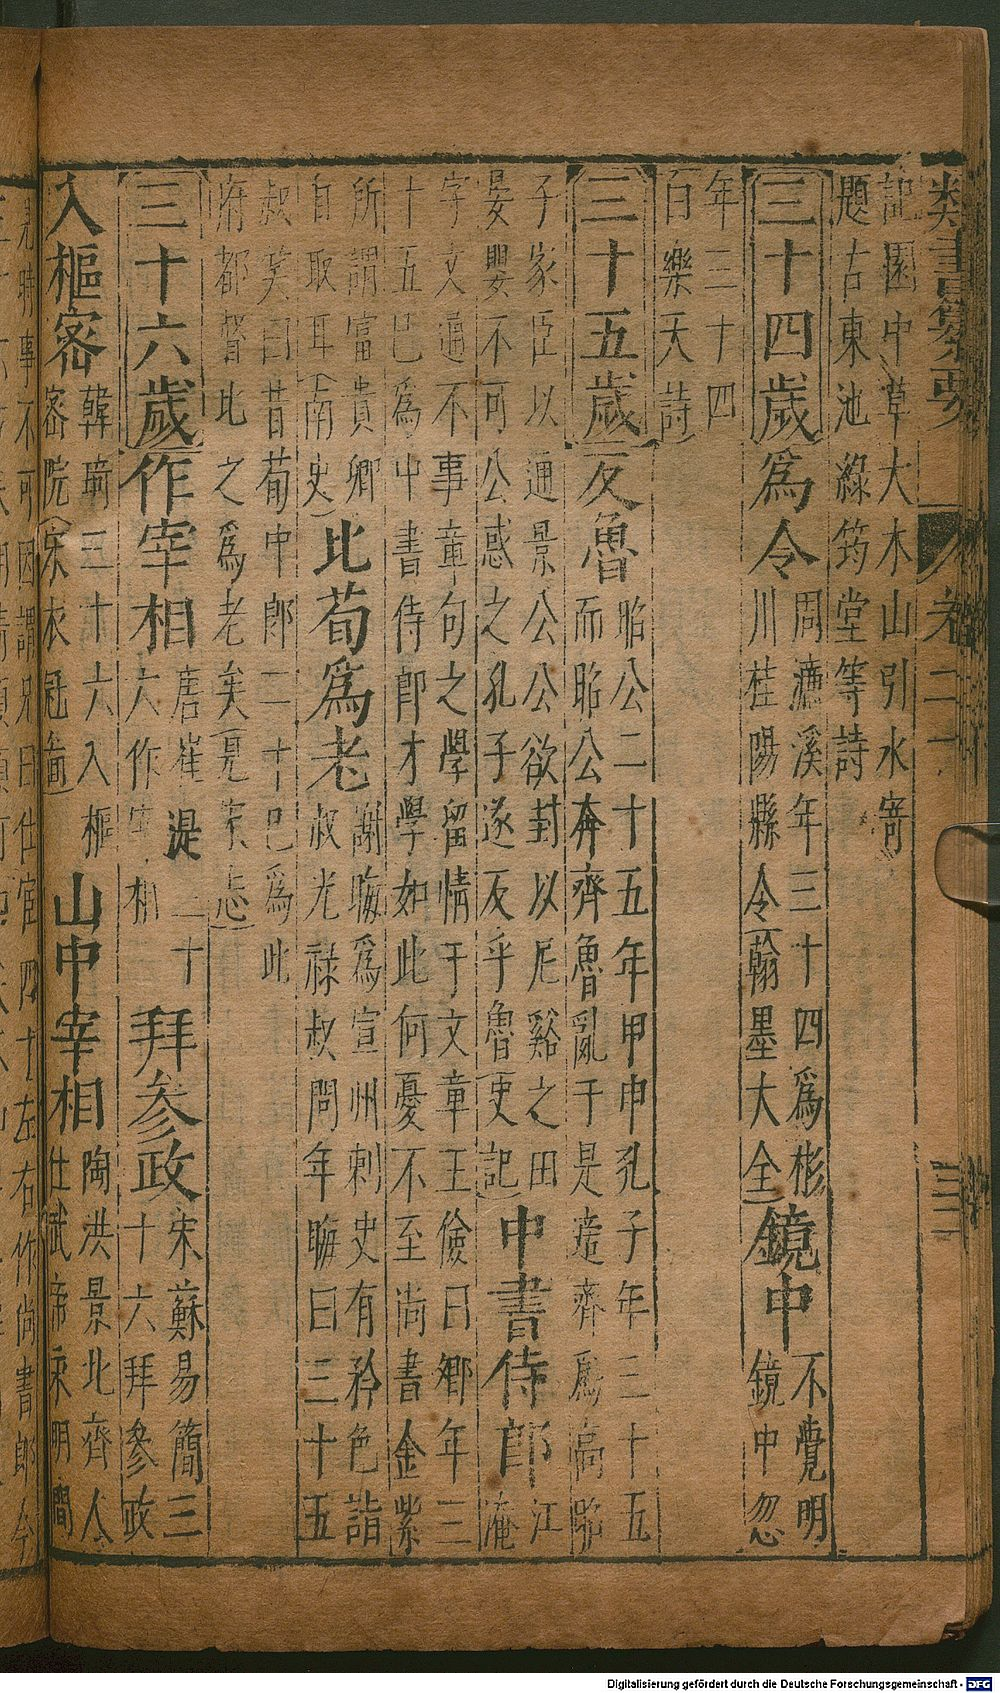 類書纂要 卷二
記園中草大木山引水寄
題古東池綠筠堂等詩
三十四歲 為令 周濂溪年三十四為彬
川桂陽縣令(翰墨大全) 鏡中 不覺明
鏡中忽
年三十四
白樂天詩)
三十五歲 反魯 昭公二十五年甲申孔子年三十五
而昭公奔齊魯亂于是適齊為高昭
子家臣以通景公公欲封以尼谿之田
晏嬰不可公惑之孔子遂反乎魯(史記) 中書侍郎 江
淹
字文通不事章句之學留情于文章王儉曰卿年三
十五已為中書侍郎才學如此何憂不至尚書金紫
所謂富貴卿
自取耳(南史) 比荀為老 謝晦為宣州刺史有矜色詣
叔光祿叔問年晦曰三十五
叔笑曰昔荀中郎二十已為此
府都督比之為老矣(見宋志)
三十六歲 作宰相 唐崔湜三十
六作宰相 拜參政 宋蘇易簡三
十六拜參政
入樞密 韓琦三十六入樞
密院(宋衣冠 山中宰相 陶洪景北齊人
仕武帝永明間
Digitalisierung gefördert durch die Deutsche Forschungsgemeinschaft - DFG